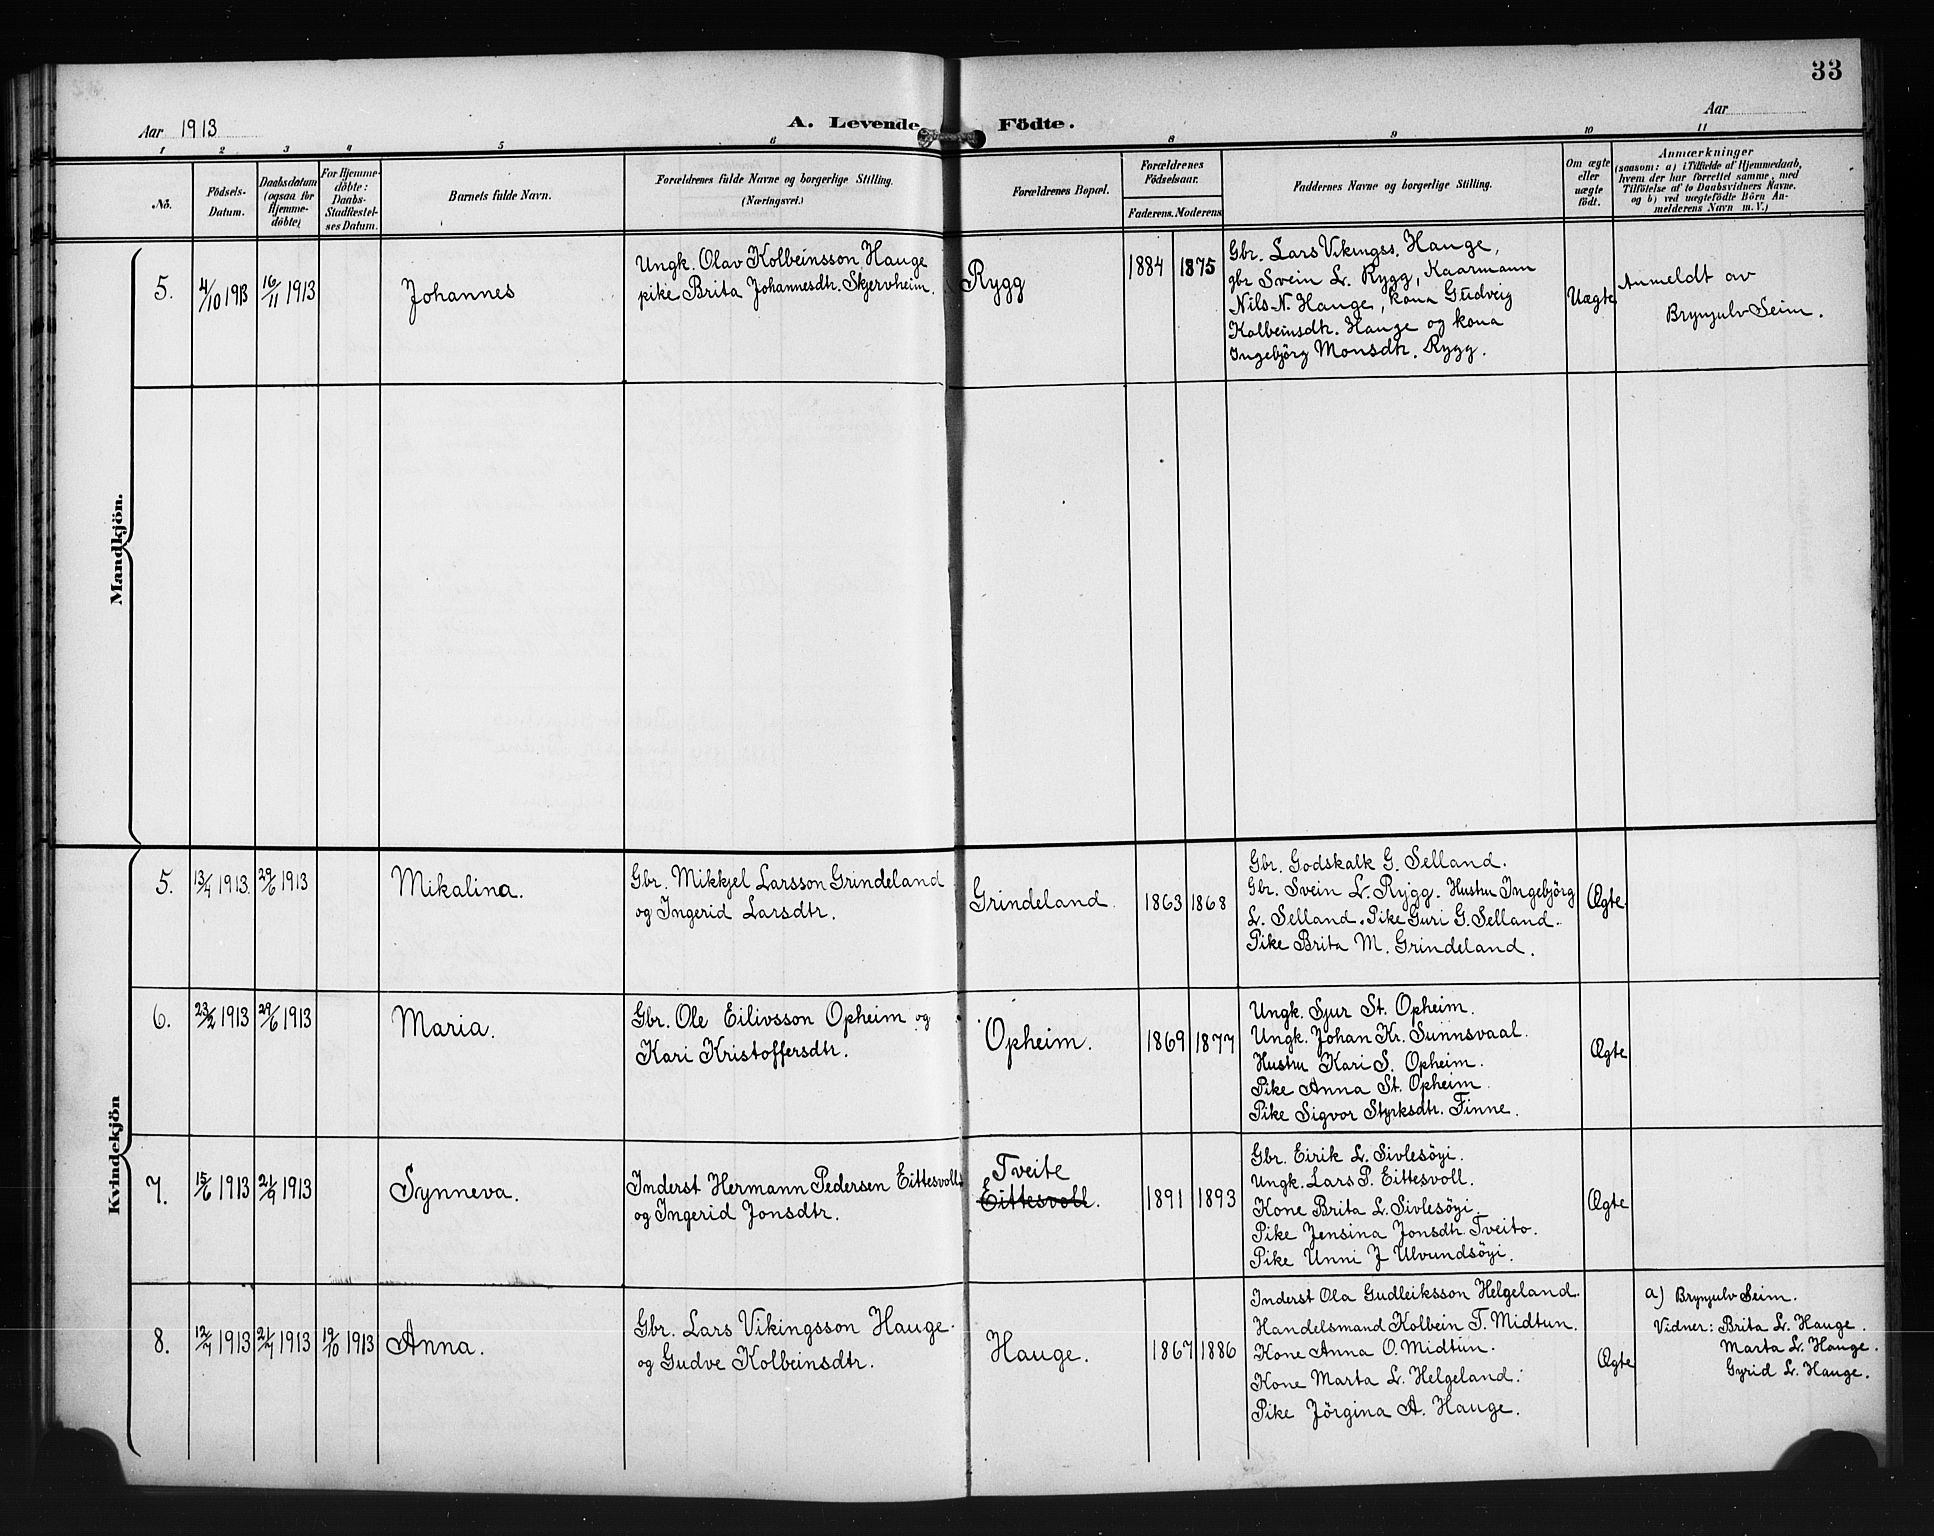 33
Aar 1913
A. Levende Födte.
Aar
1 2 3 4 5 6 8 9 10 11
No.
Födsels-Datum.
Daabsdatum (ogsaa for Hjemme-döbte)
For Hjemme-döbte: Daabs-Stadfæstel-ses Datum.
Barnets fulde Navn.
Forældrenes fulde Navne og borgerlige Stilling.
(Næringsvei.)
Forældrenes Bopæl.
Forældrenes Födselsaar.
Faderens. Moderens
Faddernes Navne og borgerlige Stilling.
Om ægte eller uægte födt.
Anmærkninger
(saasom: a) i Tilfælde af Hjemmedaab,
hvem der har forrettet samme, med
Tilföielse af to Daabsvidners Navne.
og b) ved uægtefödte Börn An-
melderens Navn m. V.)
Mandkjön.
5. 4/10 1913 16/11 1913 Johannes
Ungk. Olav Kolbeinsson Hauge
pike Brita Johannesdtr. Skjervheim.
Rygg
1884 1875
Gbr. Lars Vikingss. Hauge,
gbr Svein L. Rygg, Kaarmann
Nils N. Hauge, kona Gudveig
Kolbeinsdtr. Hauge og kona
Ingebjörg Monsdtr. Rygg.
Uægte
Anmeldt av
Brynjulv Seim.
Kvindekjön
5. 13/4 1913. 29/6 1913 Mikalina.
Gbr. Mikkjel Larsson Grindeland
og Ingerid Larsdtr.
Grindeland.
1863 1868
Gbr. Godskalk G. Selland.
Gbr. Svein L. Rygg. Hustru Ingebjörg
L. Selland. Pike Guri G. Selland.
Pike Brita M. Grindeland.
Ægte.
6. 23/2 1913 29/6 1913 Maria.
Gbr. Ole Eilivsson Opheim og
Kari Kristoffersdtr.
Opheim.
1869 1877
Ungk. Sjur St. Opheim.
Ungk. Johan Kr. Sunnsvaal.
Hustru Kari S. Opheim.
Pike Anna St. Opheim.
Pike Sigvor Styrksdtr. Finne.
Ægte
7. 15/6 1913 21/9 1913 Synneva.
Inderst Hermann Pedersen Eittesvoll.
og Ingerid Jonsdtr.
Tveite
Eittesvoll.
1891 1893
Gbr. Eirik L. Sivlesöyi.
Ungk. Lars P. Eittesvoll.
Kone Brita L. Sivlesöyi.
Pike Jensina Jonsdtr. Tveito.
Pike Unni J Ulvundsöyi.
Ægte
8. 12/7 1913 21/7 1913 19/10 1913 Anna.
Gbr. Lars Vikingsson Hauge.
og Gudve Kolbeinsdtr.
Hauge.
1867 1886
Inderst Ola Gudleiksson Helgeland.
Handelsmand Kolbein T. Midtun.
Kone Anna O. Midtun.
Kone Marta L. Helgeland.
Pike Jörgina A. Hauge.
Ægte
a) Brynjulv Seim.
Vidner: Brita L. Hauge.
Marta L. Hauge.
Gyrid L. Hauge.